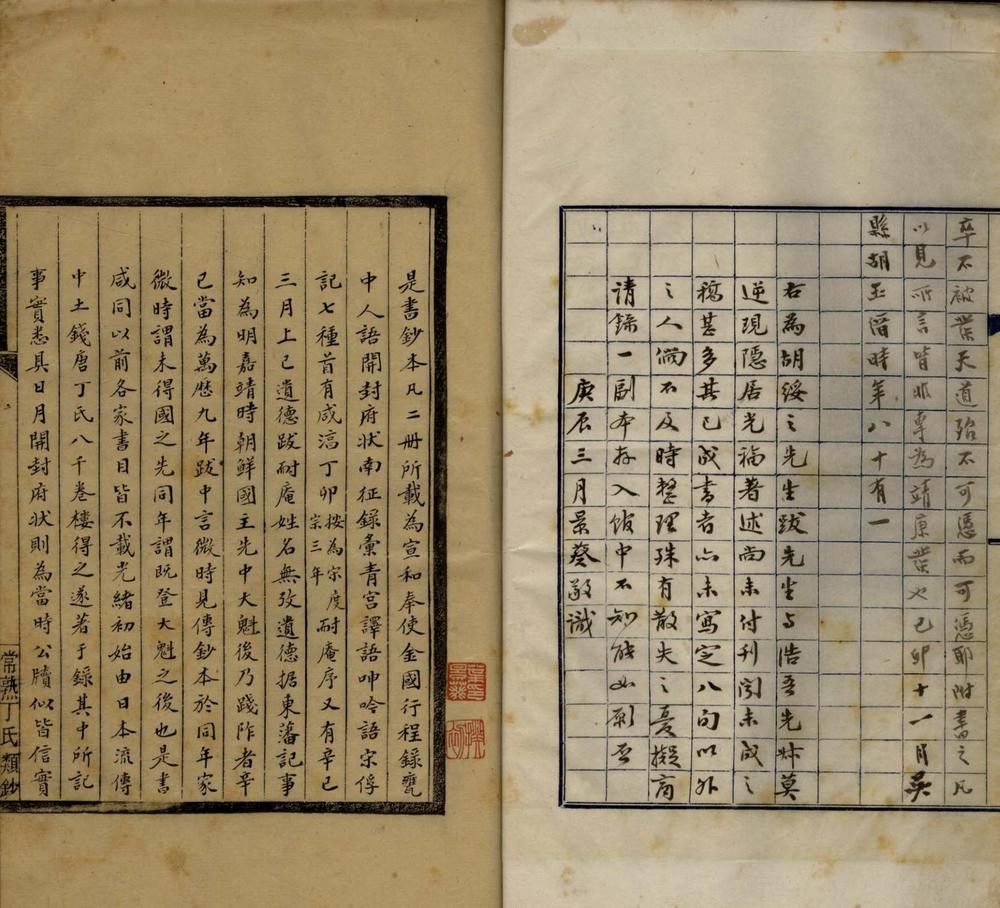 卒不被業天道殆不可憑而可憑耶附書之凡
以見所言皆非專為靖康業也己卯十一月吳
縣胡玉縉時年八十有一
右為胡綏之先生跋先生与浩吾先妹莫
逆現隱居光福著述尚未付刊聞未成之
稿甚多其已成書者亦未寫定八旬以外
之人倘不及時整理殊有散失之憂擬商
請錄一副本存入館中不知能如願否
庚辰三月景葵敬識
是書鈔本凡二冊所載為宣和奉使金國行程錄甕
中人語開封府狀南征錄彙青宮譯語呻吟語宋俘
記七種首有咸淳丁卯按為宋度宗三年耐庵序又有辛巳
三月上巳遺德跋耐庵姓名無攷遺德据東藩記事
知為明嘉靖時朝鮮國主先中大魁後乃踐阼者辛
巳當為萬歷九年跋中言微時見傳鈔本於同年家
微時謂未得國之先同年謂既登大魁之後也是書
咸同以前各家書目皆不載光緒初始由日本流傳
中土錢唐丁氏八千卷樓得之遂著于錄其中所記
事實悉具日月開封府狀則為當時公牘似皆信實
常熟丁氏類鈔